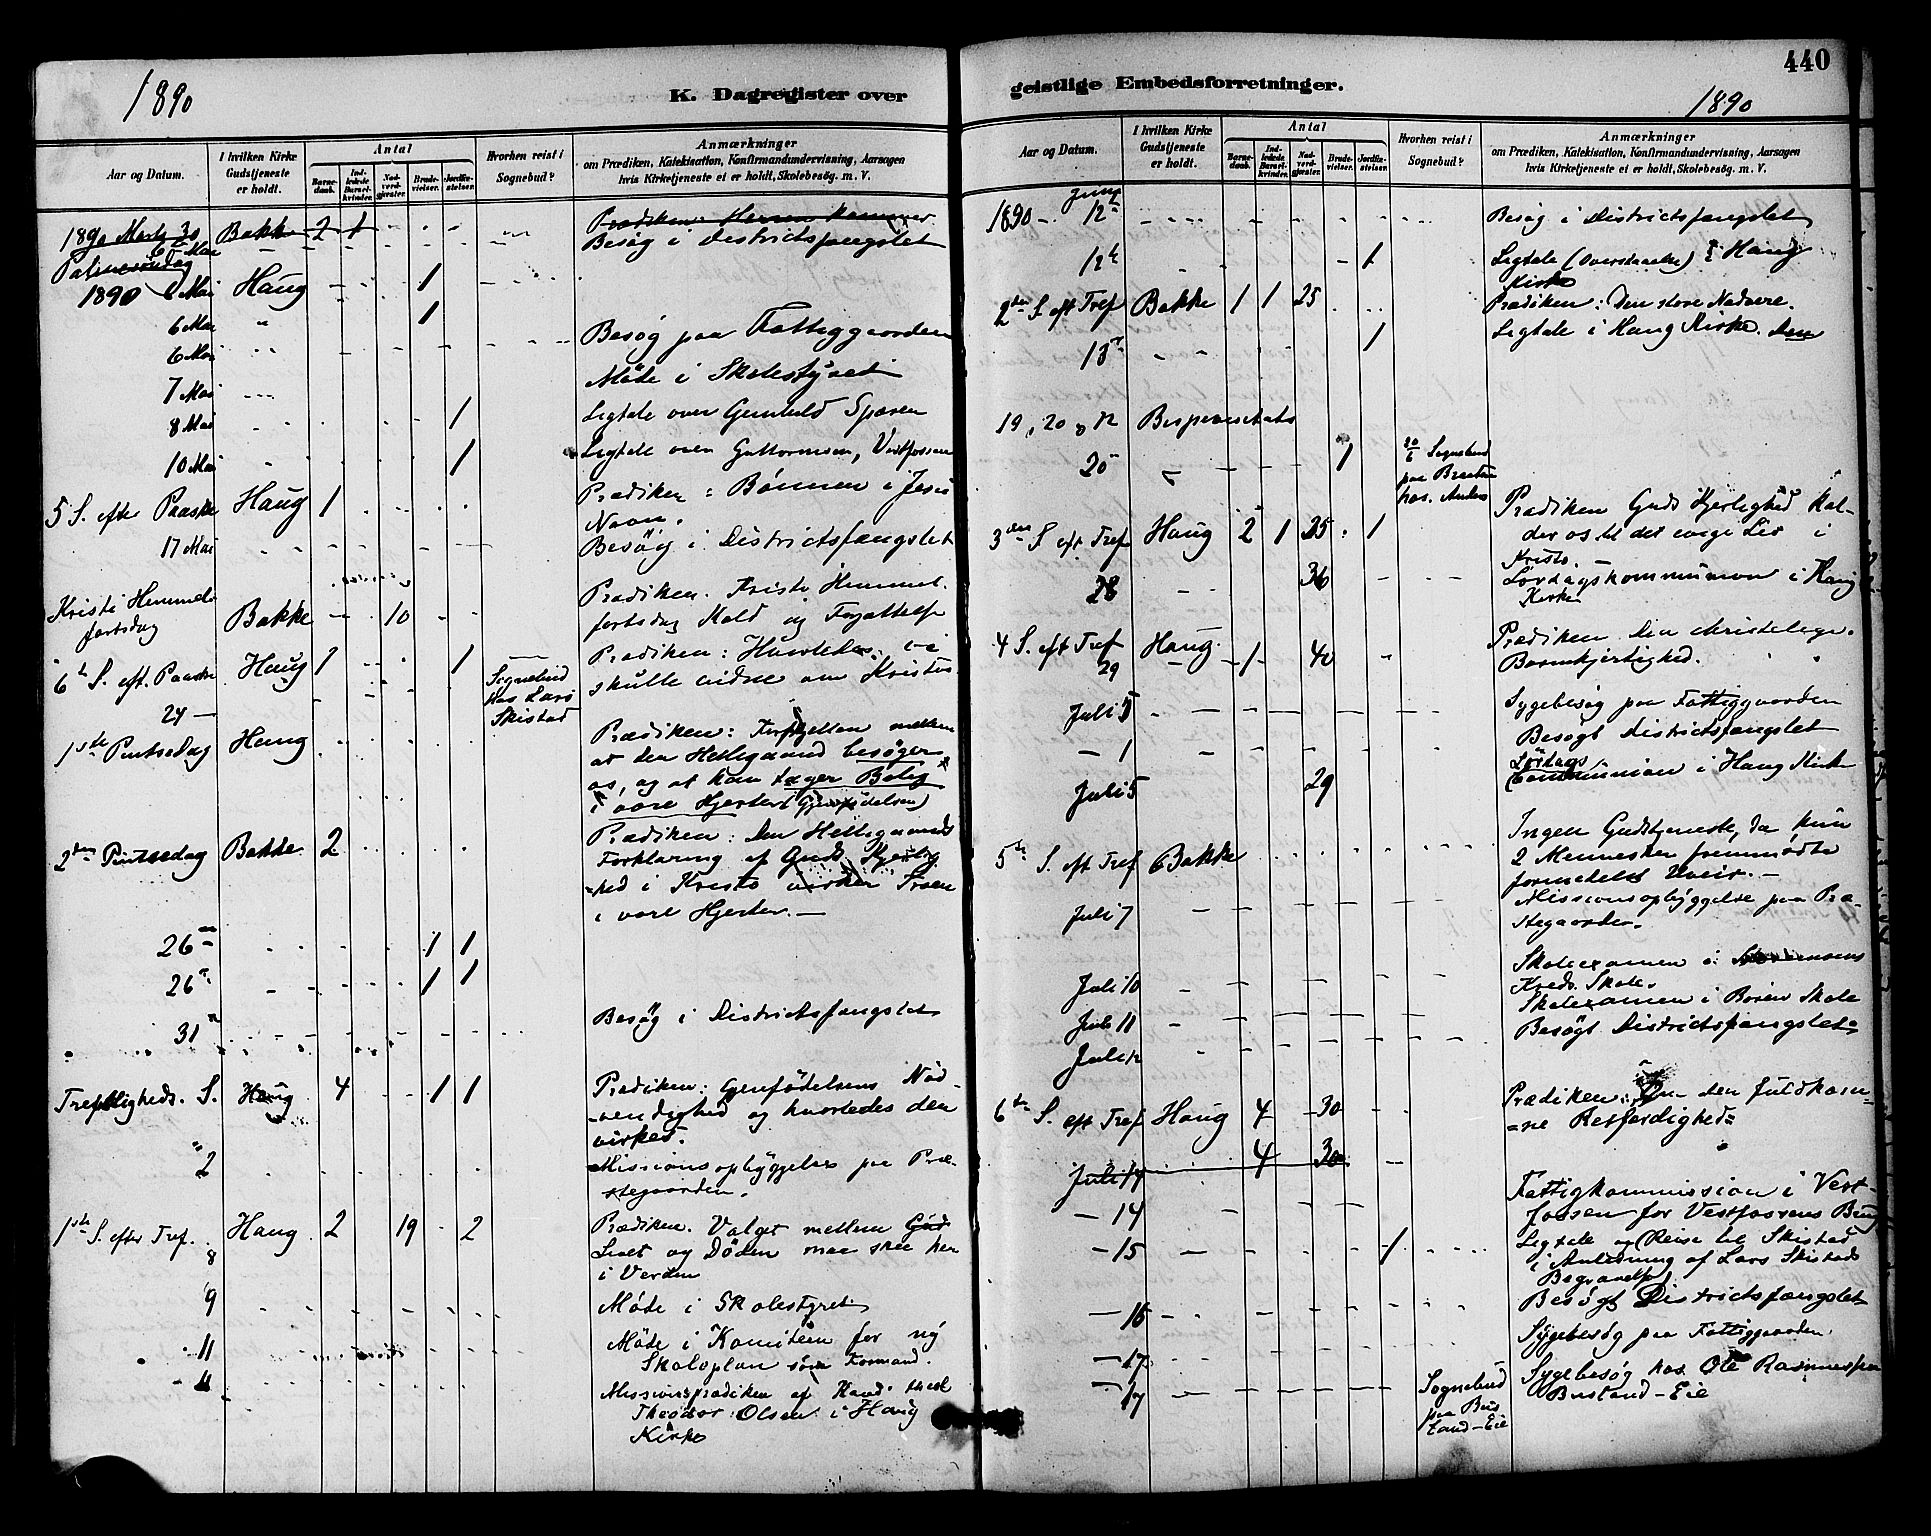 1890
K. Dagregister over
Aar og Datum.
I hvilken Kirke Gudstjeneste er holdt.
Antal
Barnedaab.
Indledede Barselkvinder.
Nadverdgjester.
Brudevielser.
Jordfæstelser.
Hvorhen reist i Sognebud?
Anmærkninger
om Prædiken, Katekisation, Konfirmandundervisning, Aarsagen
hvis Kirketjeneste ei er holdt, Skolebesøg. m. V.
1890 Marts 30 Bakke 2 1 Prædiken: Herren kommer
6 Mai Besøg i Districtsfængslet
Palmesøndag
1890 Mai Haug 1
6 Mai " 1
6 Mai Besøg paa Fattiggaarden
7 Mai Møde i Skolestyret
8 Mai 1 Ligtale over Gunhild
10 Mai 1 Ligtale over Guttormsen, Vestfossen
5 S. efter Paaske Haug 1 Prædiken: Bønnen i Jesu
Navn.
17 Mai Besøg i Districtsfængslet
Kristi Himmel Prædiken. Kristi Himmel
fartsdag Bakke 10 fartsdag
6te S. eft. Paaske Haug 1 1 Prædiken: Hvorledes vi
Sognebud skulle vidne om Kristus
24 hos Lars
Skistad
1ste Pintsedag Haug Prædiken:
at den Helligaand besøger
os, og at han tager Bolig
i vore Hjerter (Gjenfødelsen)
2den Pintsedag Bakke 2 Prædiken: Den Helligaands
Forklaring af Guds Kjærlig
-hed i Kristo virker Troen
i vore Hjerter. —
26 1 1
26 1 1
31 Besøg i Districtsfængslet
Trefoldigheds. S. Haug 4 1 1 Prædiken: Gjenfødelsens Nød-
-vendighed og hvorledes den
virkes.
2 Missionsopbyggelse paa Præ-
-stegaarden.
1ste S. efter Tref. Haug 2 19 2 Prædiken. Valget mellem
8 Livet og Døden maa skee her
i Verden
9 Møde i Skolestyret
11 Møde i Komiteen for ny
Skoleplan som Formand.
11 Missionsprædiken af Kand. theol
Theodor Olsen i Haug
Kirke
440
geistlige Embedsforretninger.
1890
Aar og Datum.
I hvilken Kirke Gudstjeneste er holdt.
Antal
Barnedaab.
Indledede Barselkvinder.
Nadverdgjester.
Brudevielser.
Jordfæstelser.
Hvorhen reist i Sognebud?
Anmærkninger
om Prædiken, Katekisation, Konfirmandundervisning, Aarsagen
hvis Kirketjeneste ei er holdt, Skolebesøg. m. V.
Juni
1890 — 12 Besøg i Districtsfængslet
12 1 Ligtale i Haug
Kirke
2den S. eft Tref Bakke 1 1 25 Prædiken: Den store Nadvere.
13 1 Ligtale i Haug Kirke.
19, 20 Bispevisitats
20 1 20/6 Sognebud
paa
hos. Anders
3die S eft Tref Haug 2 1 25 1 Prædiken Guds Kjerlighed kal-
der os til det evige Liv i
Kristo.
28 36 Lørdagskommunion i Haug
Kirke
4 S. eft Tref Haug 1 40 Prædiken Den christelige
29 Barmhjertighed.
Juli Sygebesøg paa Fattiggaarden
— 1 Besøgt Districtsfængslet
Juli 5 29 Lørdags
Communion i Haug Kirke
5te S. eft Tref Bakke Ingen Gudstjeneste, da kun
2 Mennesker fremmødte
formedelst Uveir. —
Juli 7 Missionsopbyggelse paa Præ-
stegaarden.
Juli 10 Skoleexamen i
Kreds. Skole.
Juli 11 Skoleexamen i Boren Skole
Juli 12 Besøgt Districtsfængslet
6te S. eft Tref Haug 4 30 Prædiken: Om den fuldkom-
-ne Retfærdighed
Juli 14 4 30
— 14 Fattigkommission i Vest-
fossen for Vestfossens Brug
— 15 1 Ligtale og Reise til Skistad
i Anledning af Lars Skistads
Begravelse
— 16 Besøgt Districtsfængslet
— 17 Sygebesøg paa Fattiggaarden
— 17 Sognebud Sygebesøg hos Ole Rasmussen
paa Bus Busland-Eie
land-Eie